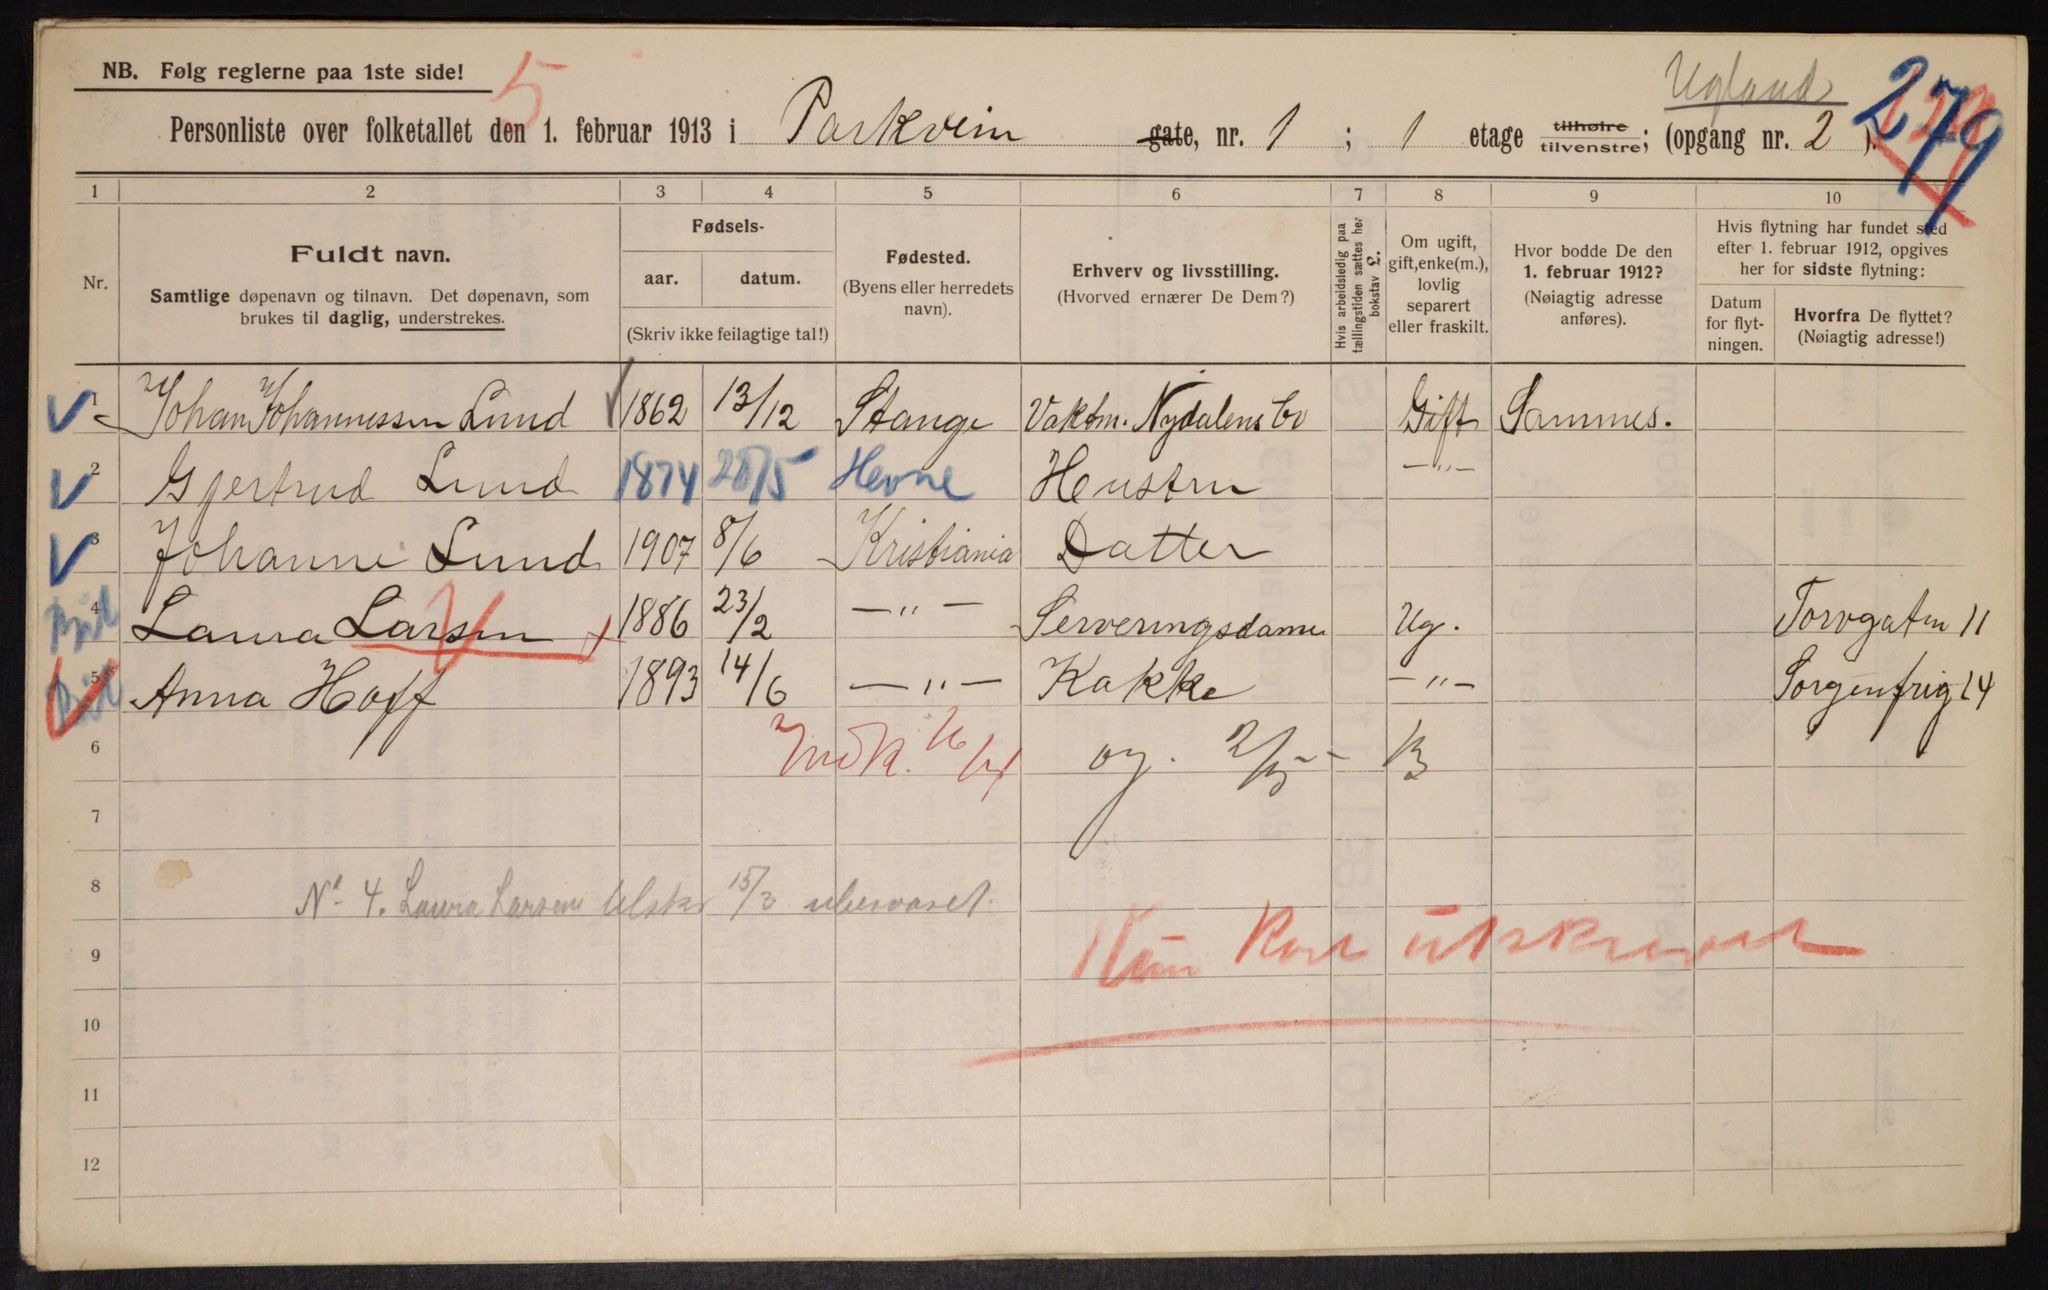 NB. Følg reglerne paa 1ste side!
5
Ugland
279
Personliste over folketallet den 1. februar 1913 i Parkvein gate, nr. 1 ; 1 etage tilhøire tilvenstre; (opgang nr. 2 ).
1 2 3 4 5 6 7 8 9 10
Nr.
Fuldt navn.
Samtlige døpenavn og tilnavn. Det døpenavn, som
brukes til daglig, understrekes.
Fødsels-
aar. datum.
(Skriv ikke feilagtige tal!)
Fødested.
(Byens eller herredets
navn).
Erhverv og livsstilling.
(Hvorved ernærer De Dem?)
Hvis arbeidsledig paa
tællingstiden sættes her
bokstav L.
Om ugift,
gift, enke(m.),
lovlig
separert
eller fraskilt.
Hvor bodde De den
1. februar 1912?
(Nøiagtig adresse
anføres).
Hvis flytning har fundet sted
efter 1. februar 1912, opgives
her for sidste flytning:
Datum
for flyt-
ningen.
Hvorfra De flyttet?
(Nøiagtig adresse!)
1 Johan Johannessen Lund 1862 13/12 Stange Vaktm. Nydalens Co Gift Sammes.
2 Gjertrud Lund 1874 28/5 Hevne Heustru —"—
3 Johanne Lund 1907 8/6 Kristiania Datter
4 Laura Larsen 1886 23/2 —"— Serveringsdame Ug. Torvgaten 11
5 Anna Hoff 1893 14/6 —"— Kokke —"— Sorgenfrig 14
6
7
8 No 4. Laura Larsen 15/3
9 Kun Kort utskrevet
10
11
12